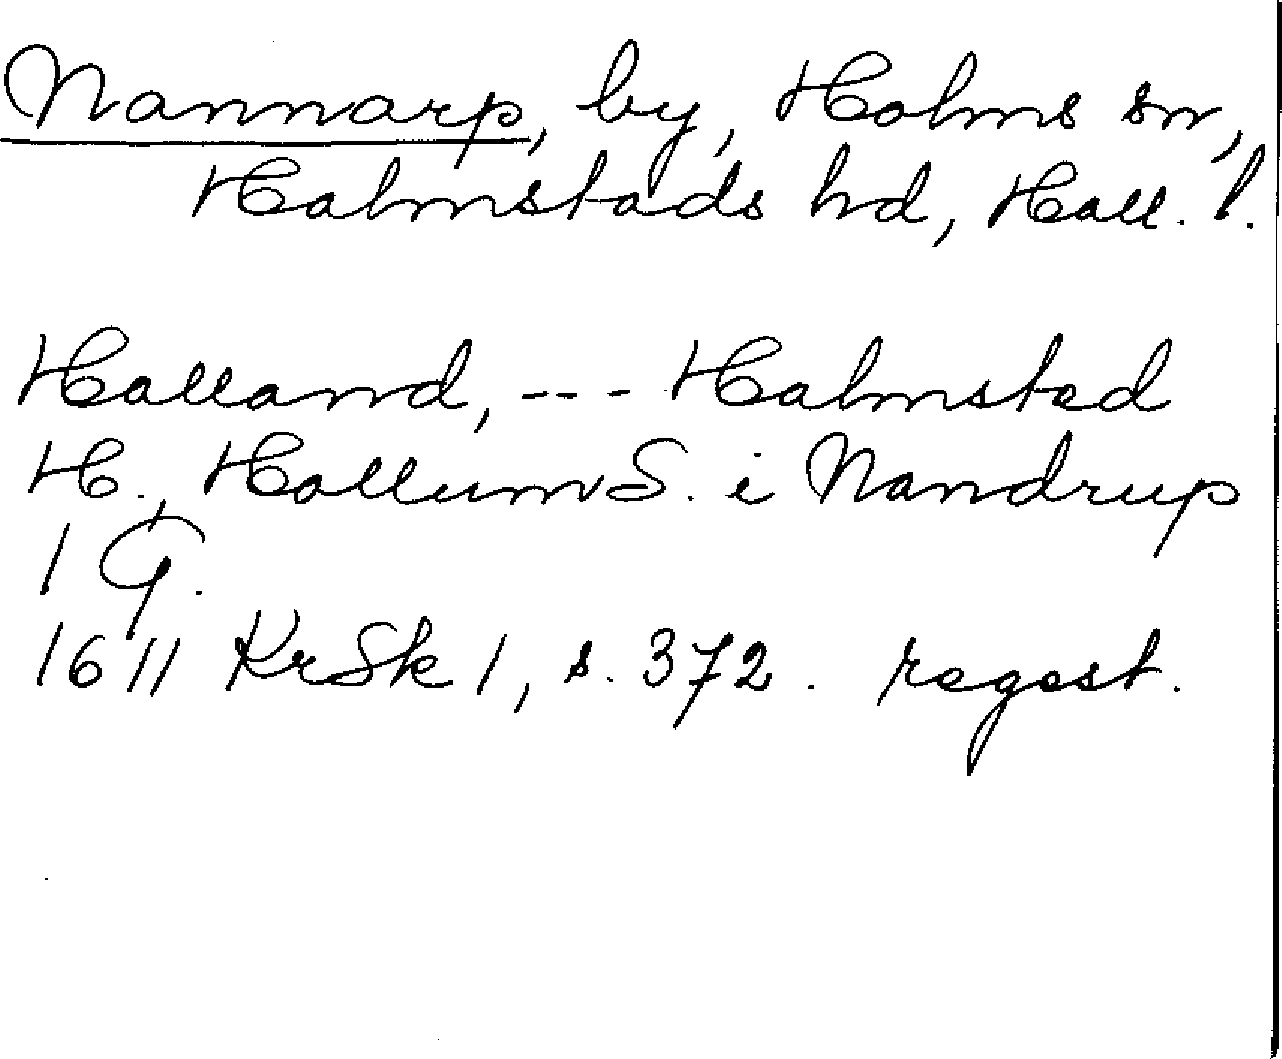 Nannarp, by, Holms sn,
Halmstads hd, Hall. l.
Halland, --- Halmsted
H., Hollum S. i Nandrup
1 G.
1611 KrSk 1, s. 372. regest.